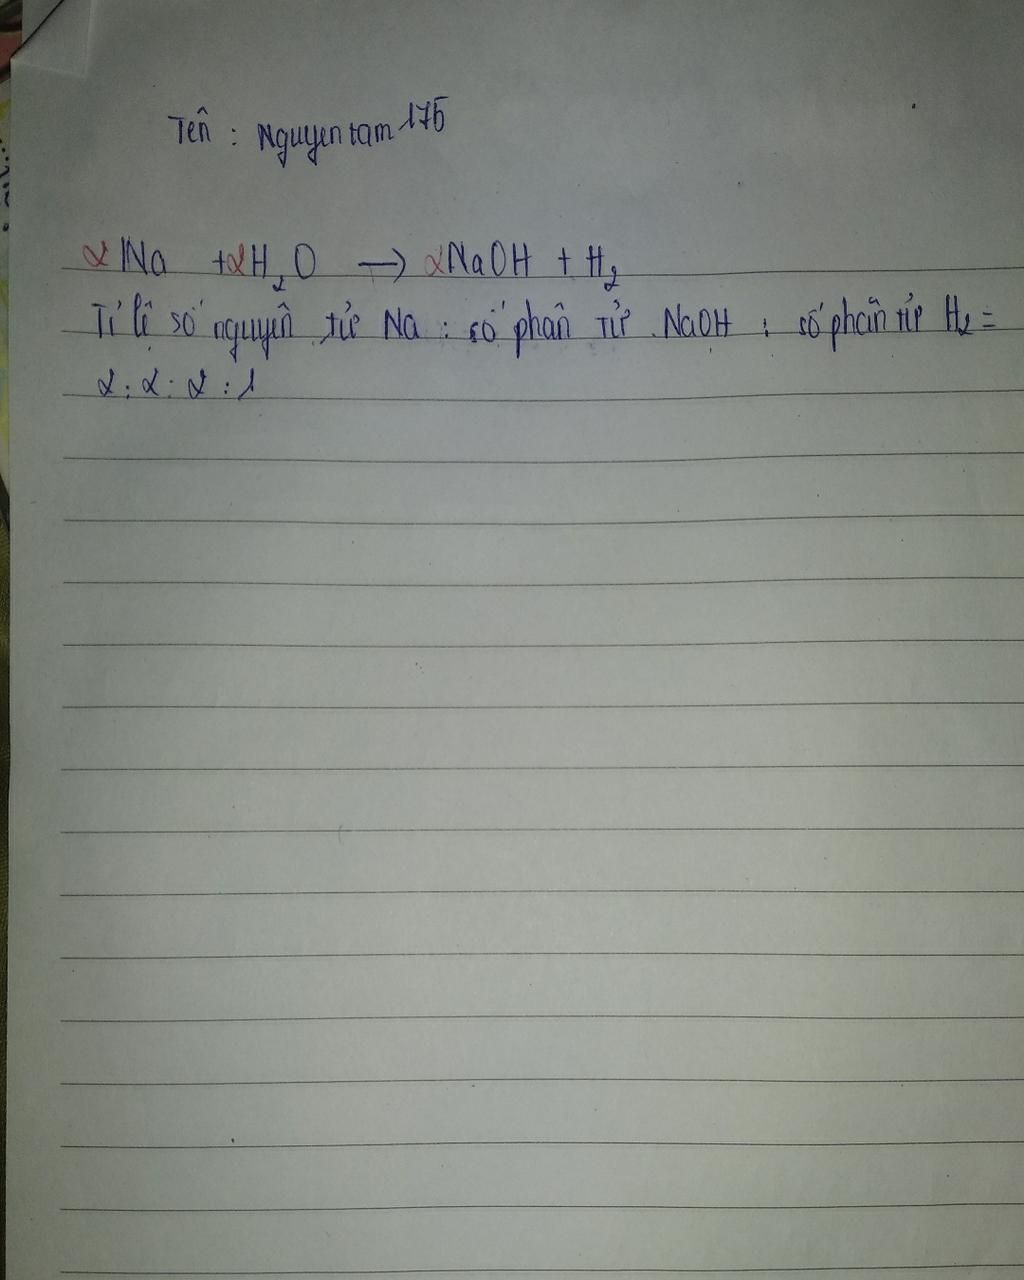 Tên : Nguyentam175
2Na + 2H₂O → 2NaOH + H₂
Tỉ lệ số nguyên tử Na : số phân tử NaOH : số phân tử H₂ =
2 : 2 : 2 : 1